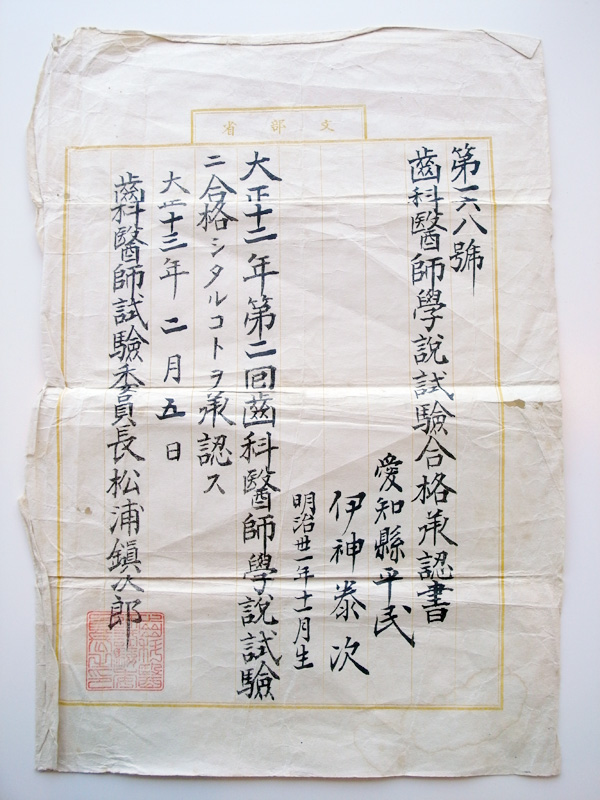 文部省
第一六八號
齒科醫師學說試驗合格承認書
愛知縣平民
伊神泰次
明治丗一年十一月生
大正十二年第二回齒科醫師學說試驗
ニ合格シタルコトヲ承認ス
大正十三年二月五日
齒科醫師試驗委員長松浦鎭次郎